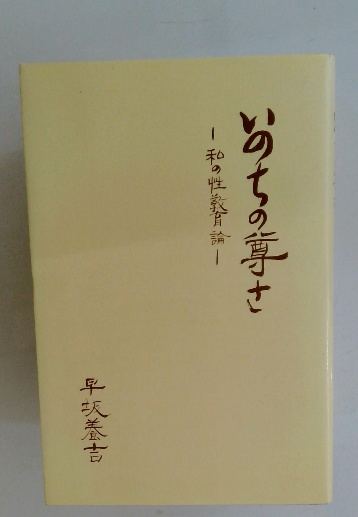 いのちの尊さ
—私の性教育論—
早坂養吉